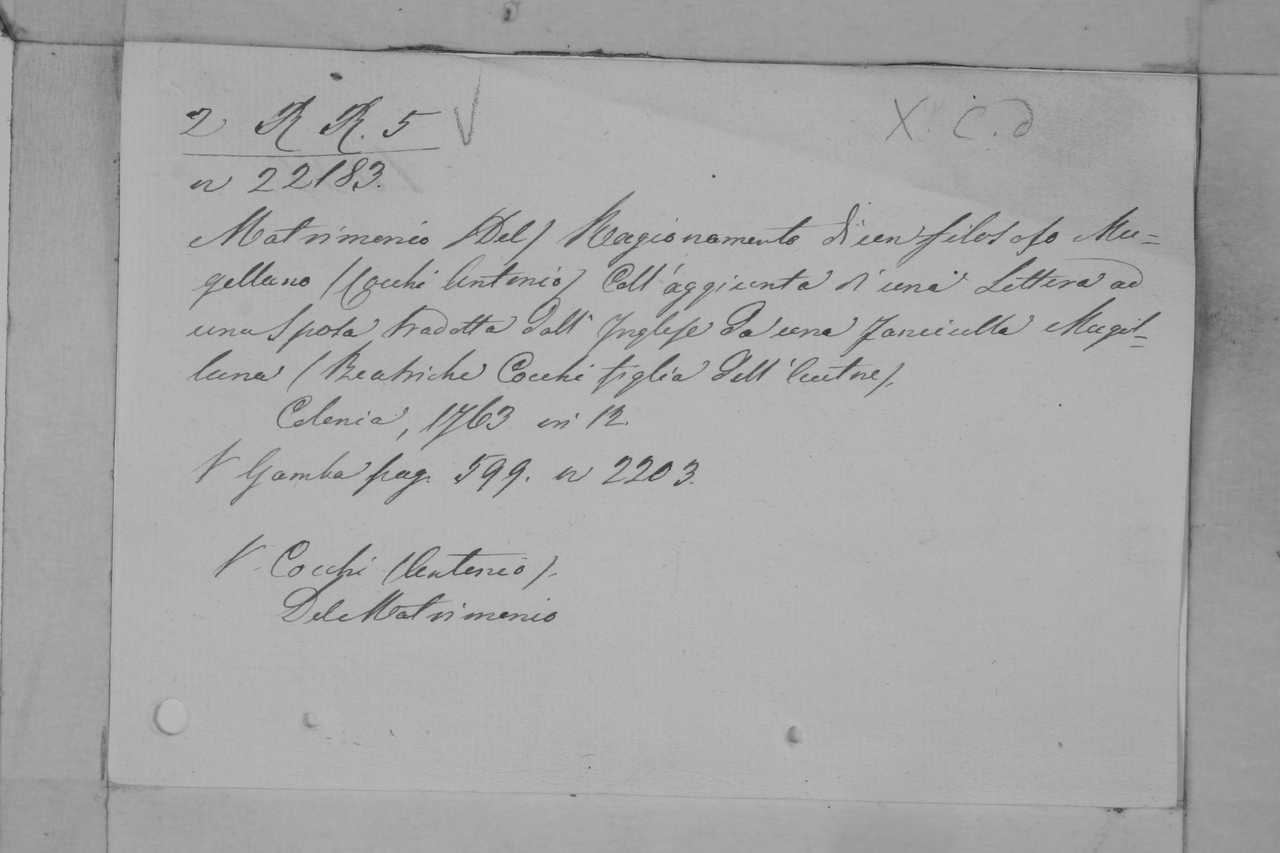 2 R R. 5
X. C. d
n 22183.
Matrimonio (Del) Ragionamento di un filosofo Mu=
gellano (Cocchi Antonio) Coll'aggiunta di una Lettera ad
una Sposa tradotta dall' Inglese da una fanciulla Mugel=
lana (Beatriche Cocchi figlia dell'Autore).
Colonia, 1763 in 12
V Gamba pag. 599. n 2203.
V. Cocchi (Antonio).
Del Matrimonio